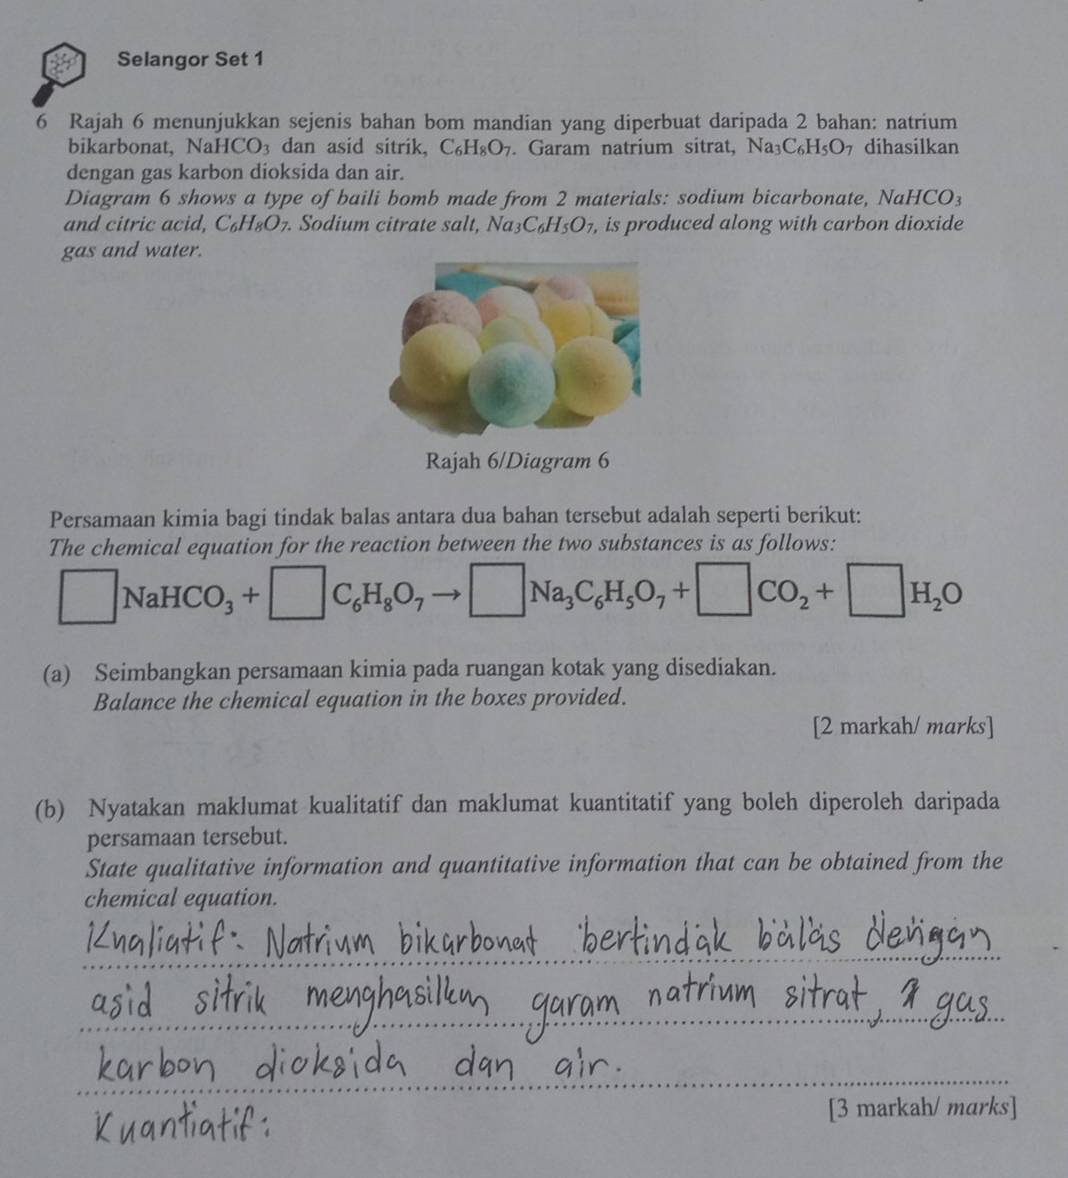 Selangor Set 1
6 Rajah 6 menunjukkan sejenis bahan bom mandian yang diperbuat daripada 2 bahan: natrium
bikarbonat, NaHCO₃ dan asid sitrik, C₆H₈O₇. Garam natrium sitrat, Na₃C₆H₅O₇ dihasilkan
dengan gas karbon dioksida dan air.
Diagram 6 shows a type of baili bomb made from 2 materials: sodium bicarbonate, NaHCO₃
and citric acid, C₆H₈O₇. Sodium citrate salt, Na₃C₆H₅O₇, is produced along with carbon dioxide
gas and water.
Rajah 6/Diagram 6
Persamaan kimia bagi tindak balas antara dua bahan tersebut adalah seperti berikut:
The chemical equation for the reaction between the two substances is as follows:
□ NaHCO₃ + □ C₆H₈O₇ → □ Na₃C₆H₅O₇ + □ CO₂ + □ H₂O
(a) Seimbangkan persamaan kimia pada ruangan kotak yang disediakan.
Balance the chemical equation in the boxes provided.
[2 markah/ marks]
(b) Nyatakan maklumat kualitatif dan maklumat kuantitatif yang boleh diperoleh daripada
persamaan tersebut.
State qualitative information and quantitative information that can be obtained from the
chemical equation.
Kualiatif: Natrium bikarbonat bertindak balas dengan
asid sitrik menghasilkan garam natrium sitrat, gas
karbon dioksida dan air.
[3 markah/ marks]
Kuantiatif: